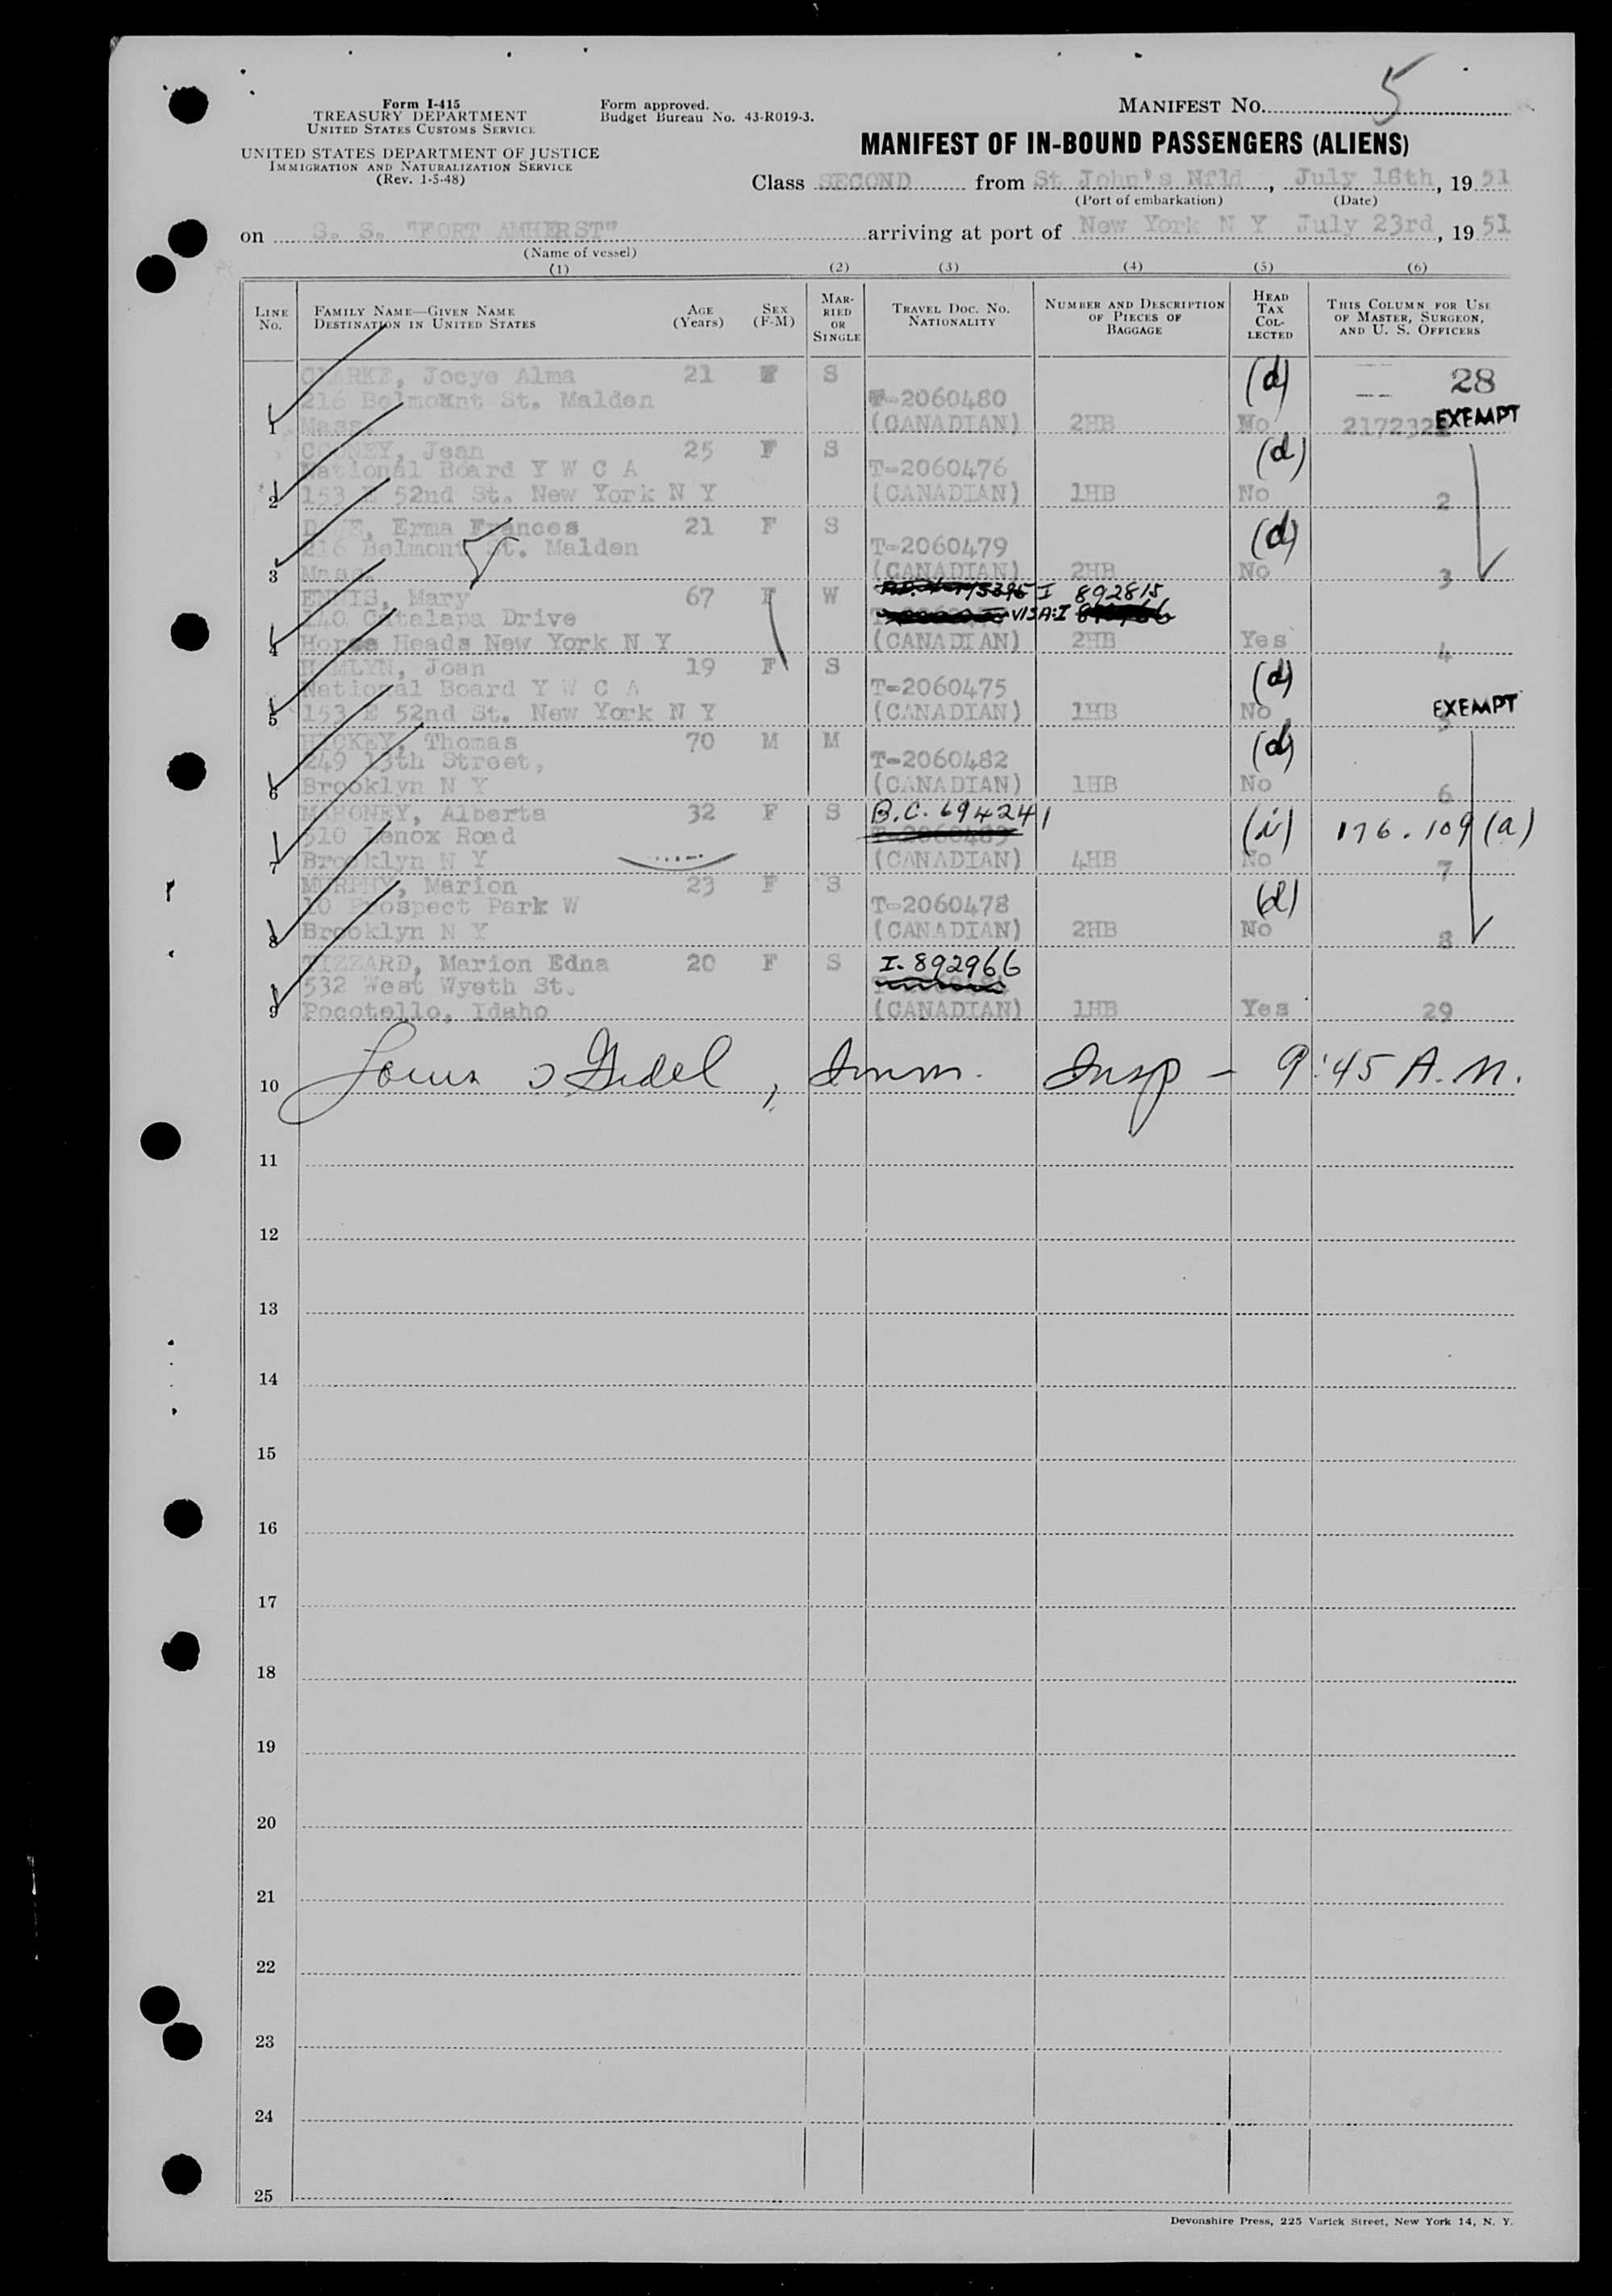 Form I-415
TREASURY DEPARTMENT
UNITED STATES CUSTOMS SERVICE
UNITED STATES DEPARTMENT OF JUSTICE
IMMIGRATION AND NATURALIZATION SERVICE
(Rev. 1-5-48)
Form approved.
Budget Bureau No. 43-R019-3.
MANIFEST NO. 5
MANIFEST OF IN-BOUND PASSENGERS (ALIENS)
Class SECOND from St John's Nfld, July 18th, 19 51
(Port of embarkation) (Date)
on S. S. "FORT AMHERST" arriving at port of New York N Y July 23rd, 19 51
(Name of vessel)
(1) (2) (3) (4) (5) (6)
LINE No. FAMILY NAME—GIVEN NAME DESTINATION IN UNITED STATES AGE (Years) SEX (F-M) MARRIED OR SINGLE TRAVEL DOC. NO. NATIONALITY NUMBER AND DESCRIPTION OF PIECES OF BAGGAGE HEAD TAX COLLECTED THIS COLUMN FOR USE OF MASTER, SURGEON, AND U. S. OFFICERS
CLARKE, Jocye Alma 21 F S (d) 28
216 Belmount St. Malden T-2060480
1 Mass. (CANADIAN) 2HB No EXEMPT
Jean 25 F S (d)
National Board Y W C A T-2060476
2 153 E 52nd St. New York N Y (CANADIAN) 1HB No 2
Erma Frances 21 F S (d)
216 Belmont St. Malden T-2060479
3 Mass. (CANADIAN) 2HB No 3
ENNIS, Mary 67 F W I 892815
140 Catalapa Drive VISA:I
4 Horse Heads New York N Y (CANADIAN) 2HB Yes 4
HAMLYN, Joan 19 F S (d)
National Board Y W C A T-2060475
5 153 E 52nd St. New York N Y (CANADIAN) 1HB No EXEMPT 5
HICKEY, Thomas 70 M M (d)
249 13th Street, T-2060482
6 Brooklyn N Y (CANADIAN) 1HB No 6
MAHONEY, Alberta 32 F S B.C. 694241
510 Lenox Road T-2060483 (i) 176.109(a)
7 Brooklyn N Y (CANADIAN) 4HB No 7
MURPHY, Marion 23 F S (d)
10 Prospect Park W T-2060478
8 Brooklyn N Y (CANADIAN) 2HB No 8
TIZZARD, Marion Edna 20 F S I-892966
532 West Wyeth St.
9 Pocotello, Idaho (CANADIAN) 1HB Yes 29
10 Imm. Insp - 9:45 A.M.
11
12
13
14
15
16
17
18
19
20
21
22
23
24
25
Devonshire Press, 225 Varick Street, New York 14, N. Y.